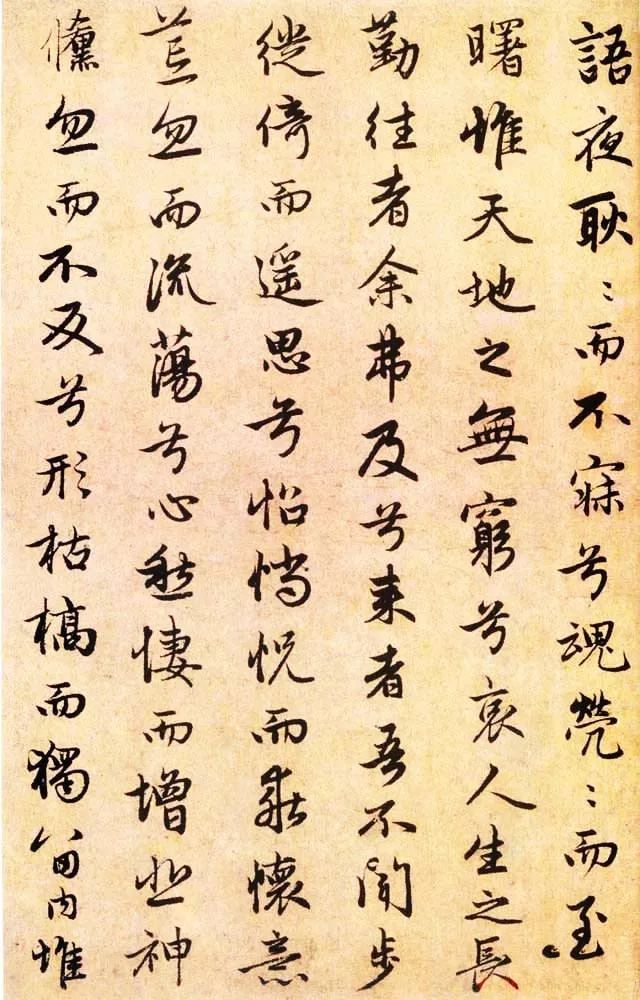 語夜耿〻而不寐兮魂煢〻而至
曙惟天地之無窮兮哀人生之長
勤往者余弗及兮来者吾不聞步
徙倚而遥思兮怊惝怳而乖懷意
荒忽而流蕩兮心愁悽而增悲神
儵忽而不反兮形枯槁而獨留内惟